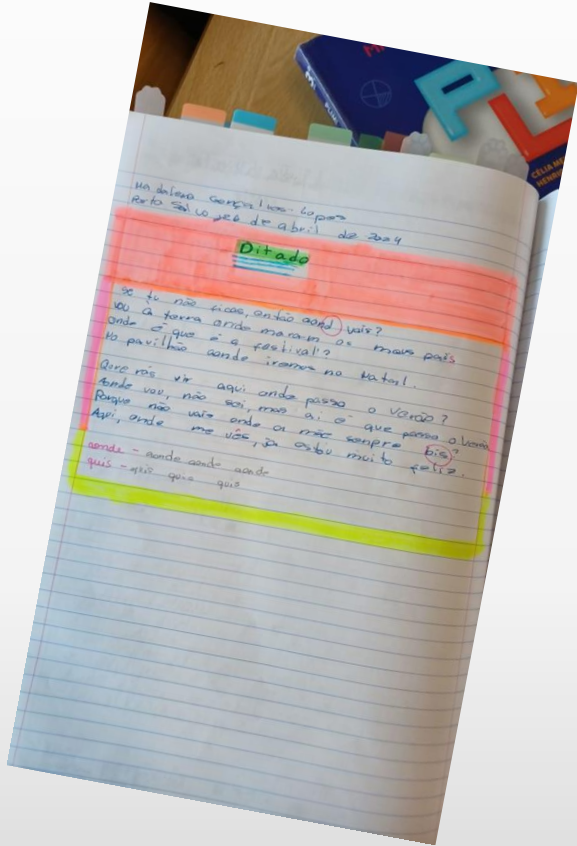 PLI
CÉLIA ME
HENRI
Madalena Gonçalves Lopes
Porto Salvo, 26 de abril de 2024
Ditado
Se tu não ficas, então aond vais?
Vou à terra onde moram os meus pais
Onde é que é a festival?
No pavilhão aonde iremos no Natal.
Quererás vir aqui onde passo o verão?
Aonde vou, não sei, mas aí é que passo o Verão
Porque não vais onde a mãe sempre bis?
Aqui, onde me vês, já estou muito feliz.
aonde - aonde aonde aonde
quis - quis quis quis